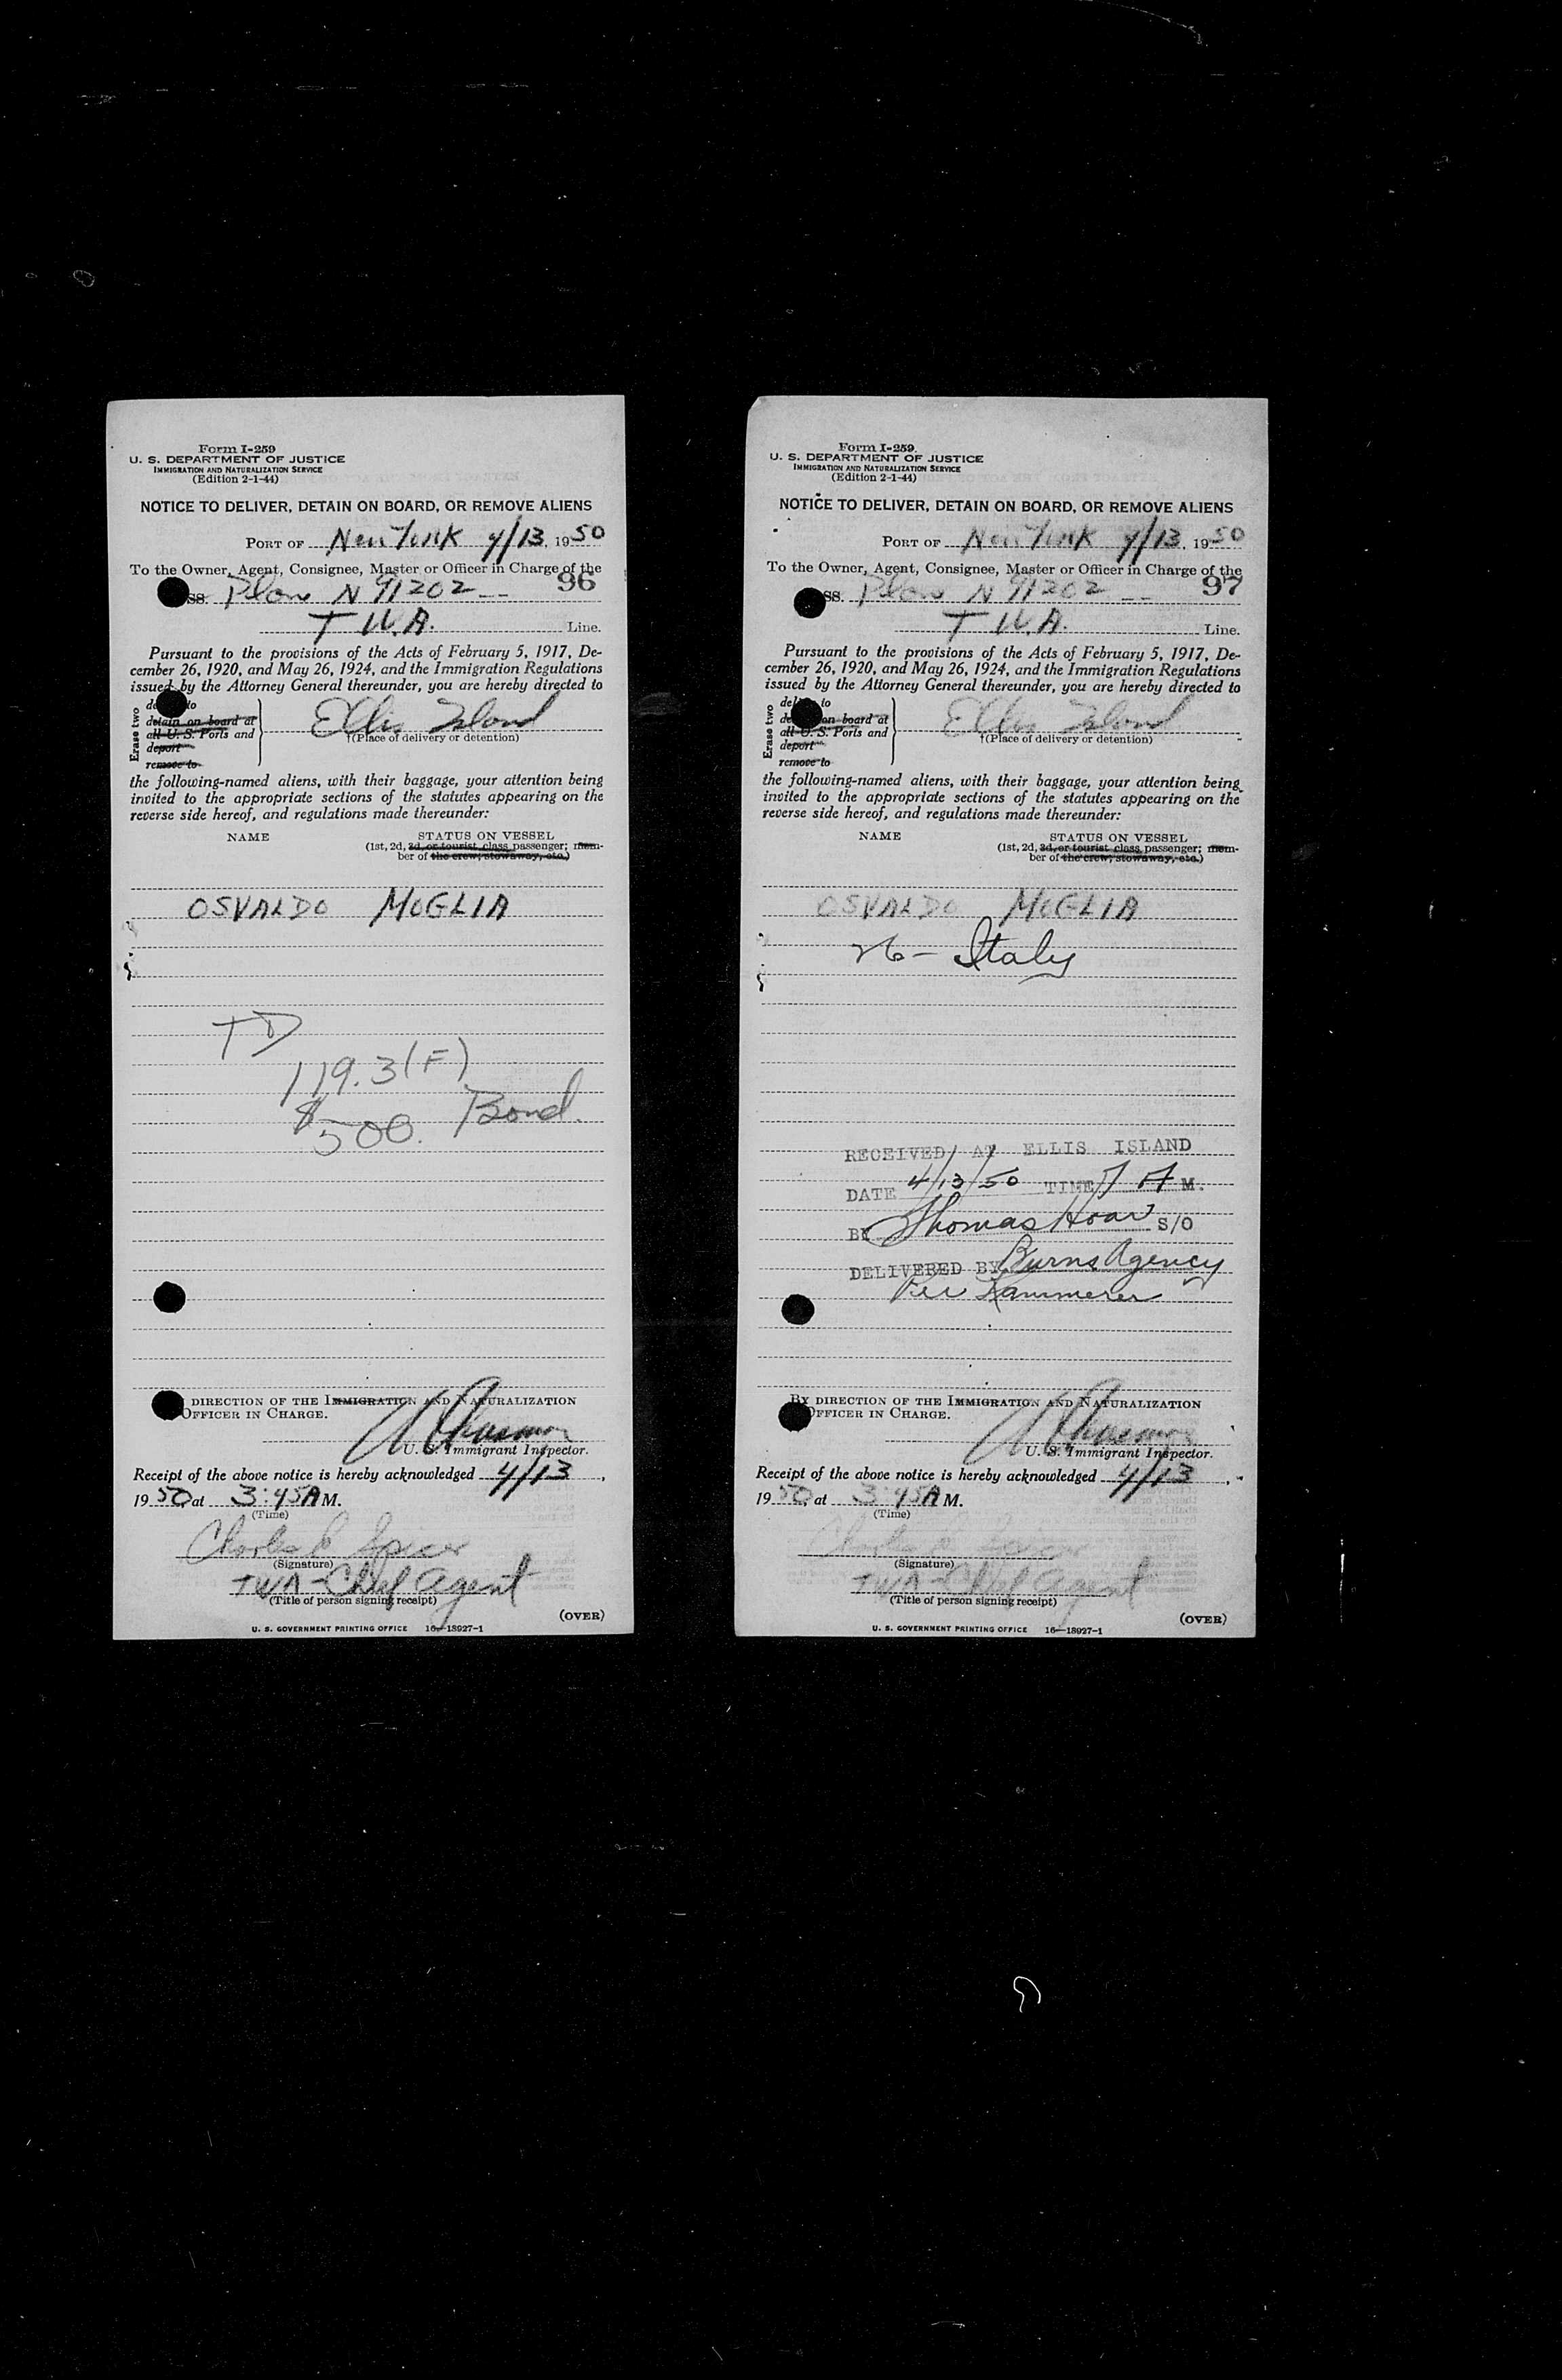 Form I-259
U. S. DEPARTMENT OF JUSTICE
IMMIGRATION AND NATURALIZATION SERVICE
(Edition 2-1-44)
NOTICE TO DELIVER, DETAIN ON BOARD, OR REMOVE ALIENS
PORT OF New York 4/13, 1950
To the Owner, Agent, Consignee, Master or Officer in Charge of the
96
SS. Plane N 91202 --
T W.A. Line.
Pursuant to the provisions of the Acts of February 5, 1917, De-
cember 26, 1920, and May 26, 1924, and the Immigration Regulations
issued by the Attorney General thereunder, you are hereby directed to
Erase two
to
detain on board at
all U. S. Ports and
deport
remove to
Ellis Island
†(Place of delivery or detention)
the following-named aliens, with their baggage, your attention being
invited to the appropriate sections of the statutes appearing on the
reverse side hereof, and regulations made thereunder:
NAME STATUS ON VESSEL
(1st, 2d, 3d, or tourist class passenger; mem-
ber of the crew; stowaway, etc.)
OSVALDO MOGLIA
TD
119.3(F)
$500. Bond.
DIRECTION OF THE IMMIGRATION AND NATURALIZATION
OFFICER IN CHARGE.
U. S. Immigrant Inspector.
Receipt of the above notice is hereby acknowledged 4/13,
1950, at 3:45 A M.
(Time)
Charles Spicer
(Signature)
TWA - Chief Agent
(Title of person signing receipt)
(OVER)
U. S. GOVERNMENT PRINTING OFFICE 16—18927-1
Form I-259
U. S. DEPARTMENT OF JUSTICE
IMMIGRATION AND NATURALIZATION SERVICE
(Edition 2-1-44)
NOTICE TO DELIVER, DETAIN ON BOARD, OR REMOVE ALIENS
PORT OF New York 4/13, 1950
To the Owner, Agent, Consignee, Master or Officer in Charge of the
97
SS. Plane N 91202 --
T W.A. Line.
Pursuant to the provisions of the Acts of February 5, 1917, De-
cember 26, 1920, and May 26, 1924, and the Immigration Regulations
issued by the Attorney General thereunder, you are hereby directed to
Erase two
to
on board at
all U. S. Ports and
deport
remove to
Ellis Island
†(Place of delivery or detention)
the following-named aliens, with their baggage, your attention being
invited to the appropriate sections of the statutes appearing on the
reverse side hereof, and regulations made thereunder:
NAME STATUS ON VESSEL
(1st, 2d, 3d, or tourist class passenger; mem-
ber of the crew; stowaway, etc.)
OSVALDO MOGLIA
26 - Italy
RECEIVED AT ELLIS ISLAND
DATE 4/13/50 TIME 7 A M.
BY Thomas Hoar S/O
DELIVERED BY Burns Agency
Per Kammerer
BY DIRECTION OF THE IMMIGRATION AND NATURALIZATION
OFFICER IN CHARGE.
U. S. Immigrant Inspector.
Receipt of the above notice is hereby acknowledged 4/13,
1950, at 3:45 A M.
(Time)
Charles Spicer
(Signature)
TWA - Chief Agent
(Title of person signing receipt)
(OVER)
U. S. GOVERNMENT PRINTING OFFICE 16—18927-1